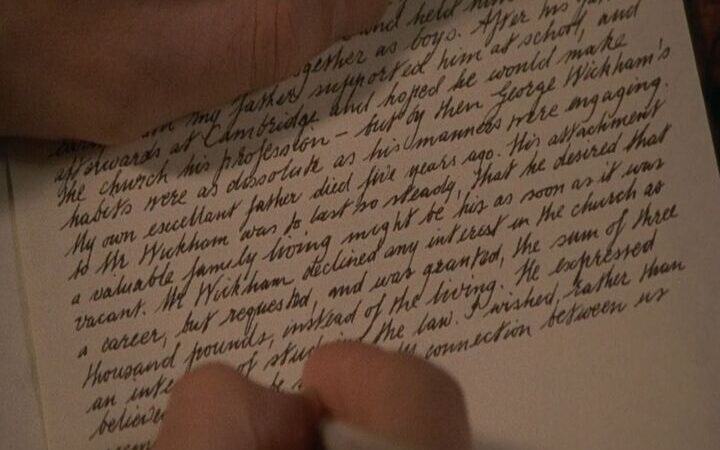 and held him
together as boys. After his
my father supported him at school, and
afterwards at Cambridge and hoped he would make
the church his profession - but by then George Wickham's
habits were as dissolute as his manners were engaging.
My own excellant father died five years ago. His attachment
to Mr Wickham was to last so steady, that he desired that
a valuable family living might be his as soon as it was
vacant. Mr Wickham declined any interest in the church as
a career, but requested, and was granted, the sum of three
thousand pounds, instead of the living. He expressed
an of the law. I wished, rather than
believed connection between us